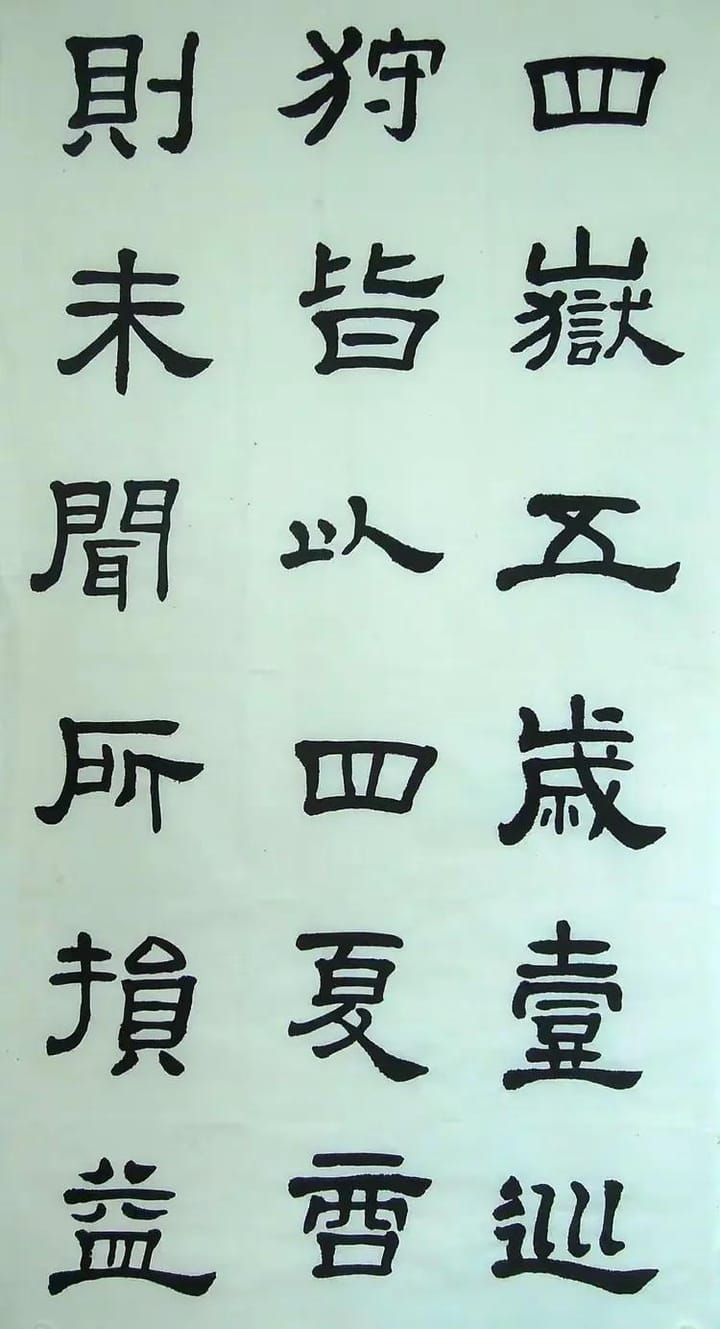 四嶽五歲壹巡
狩皆以四夏商
則未聞所損益